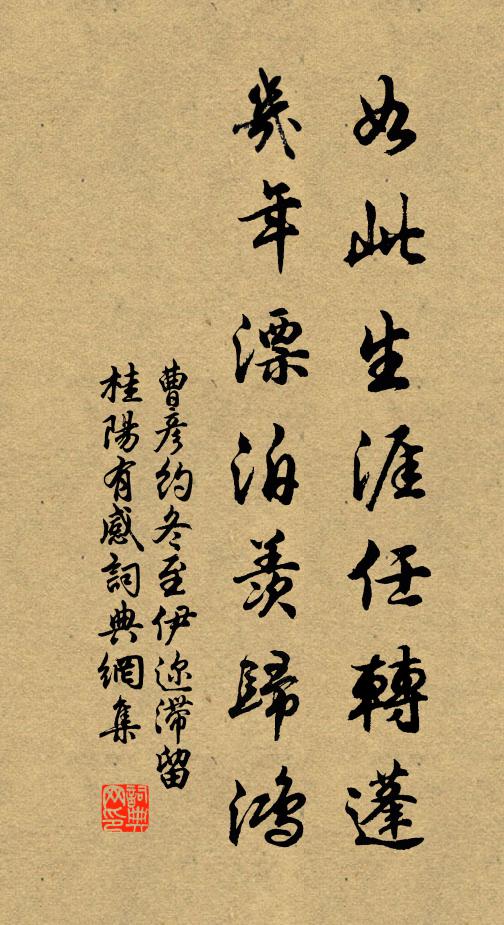 如此生涯任轉蓬
幾年漂泊羨歸鴻
曹彥約冬至伊邇滯留
桂陽有感詞典網集
詞典網印